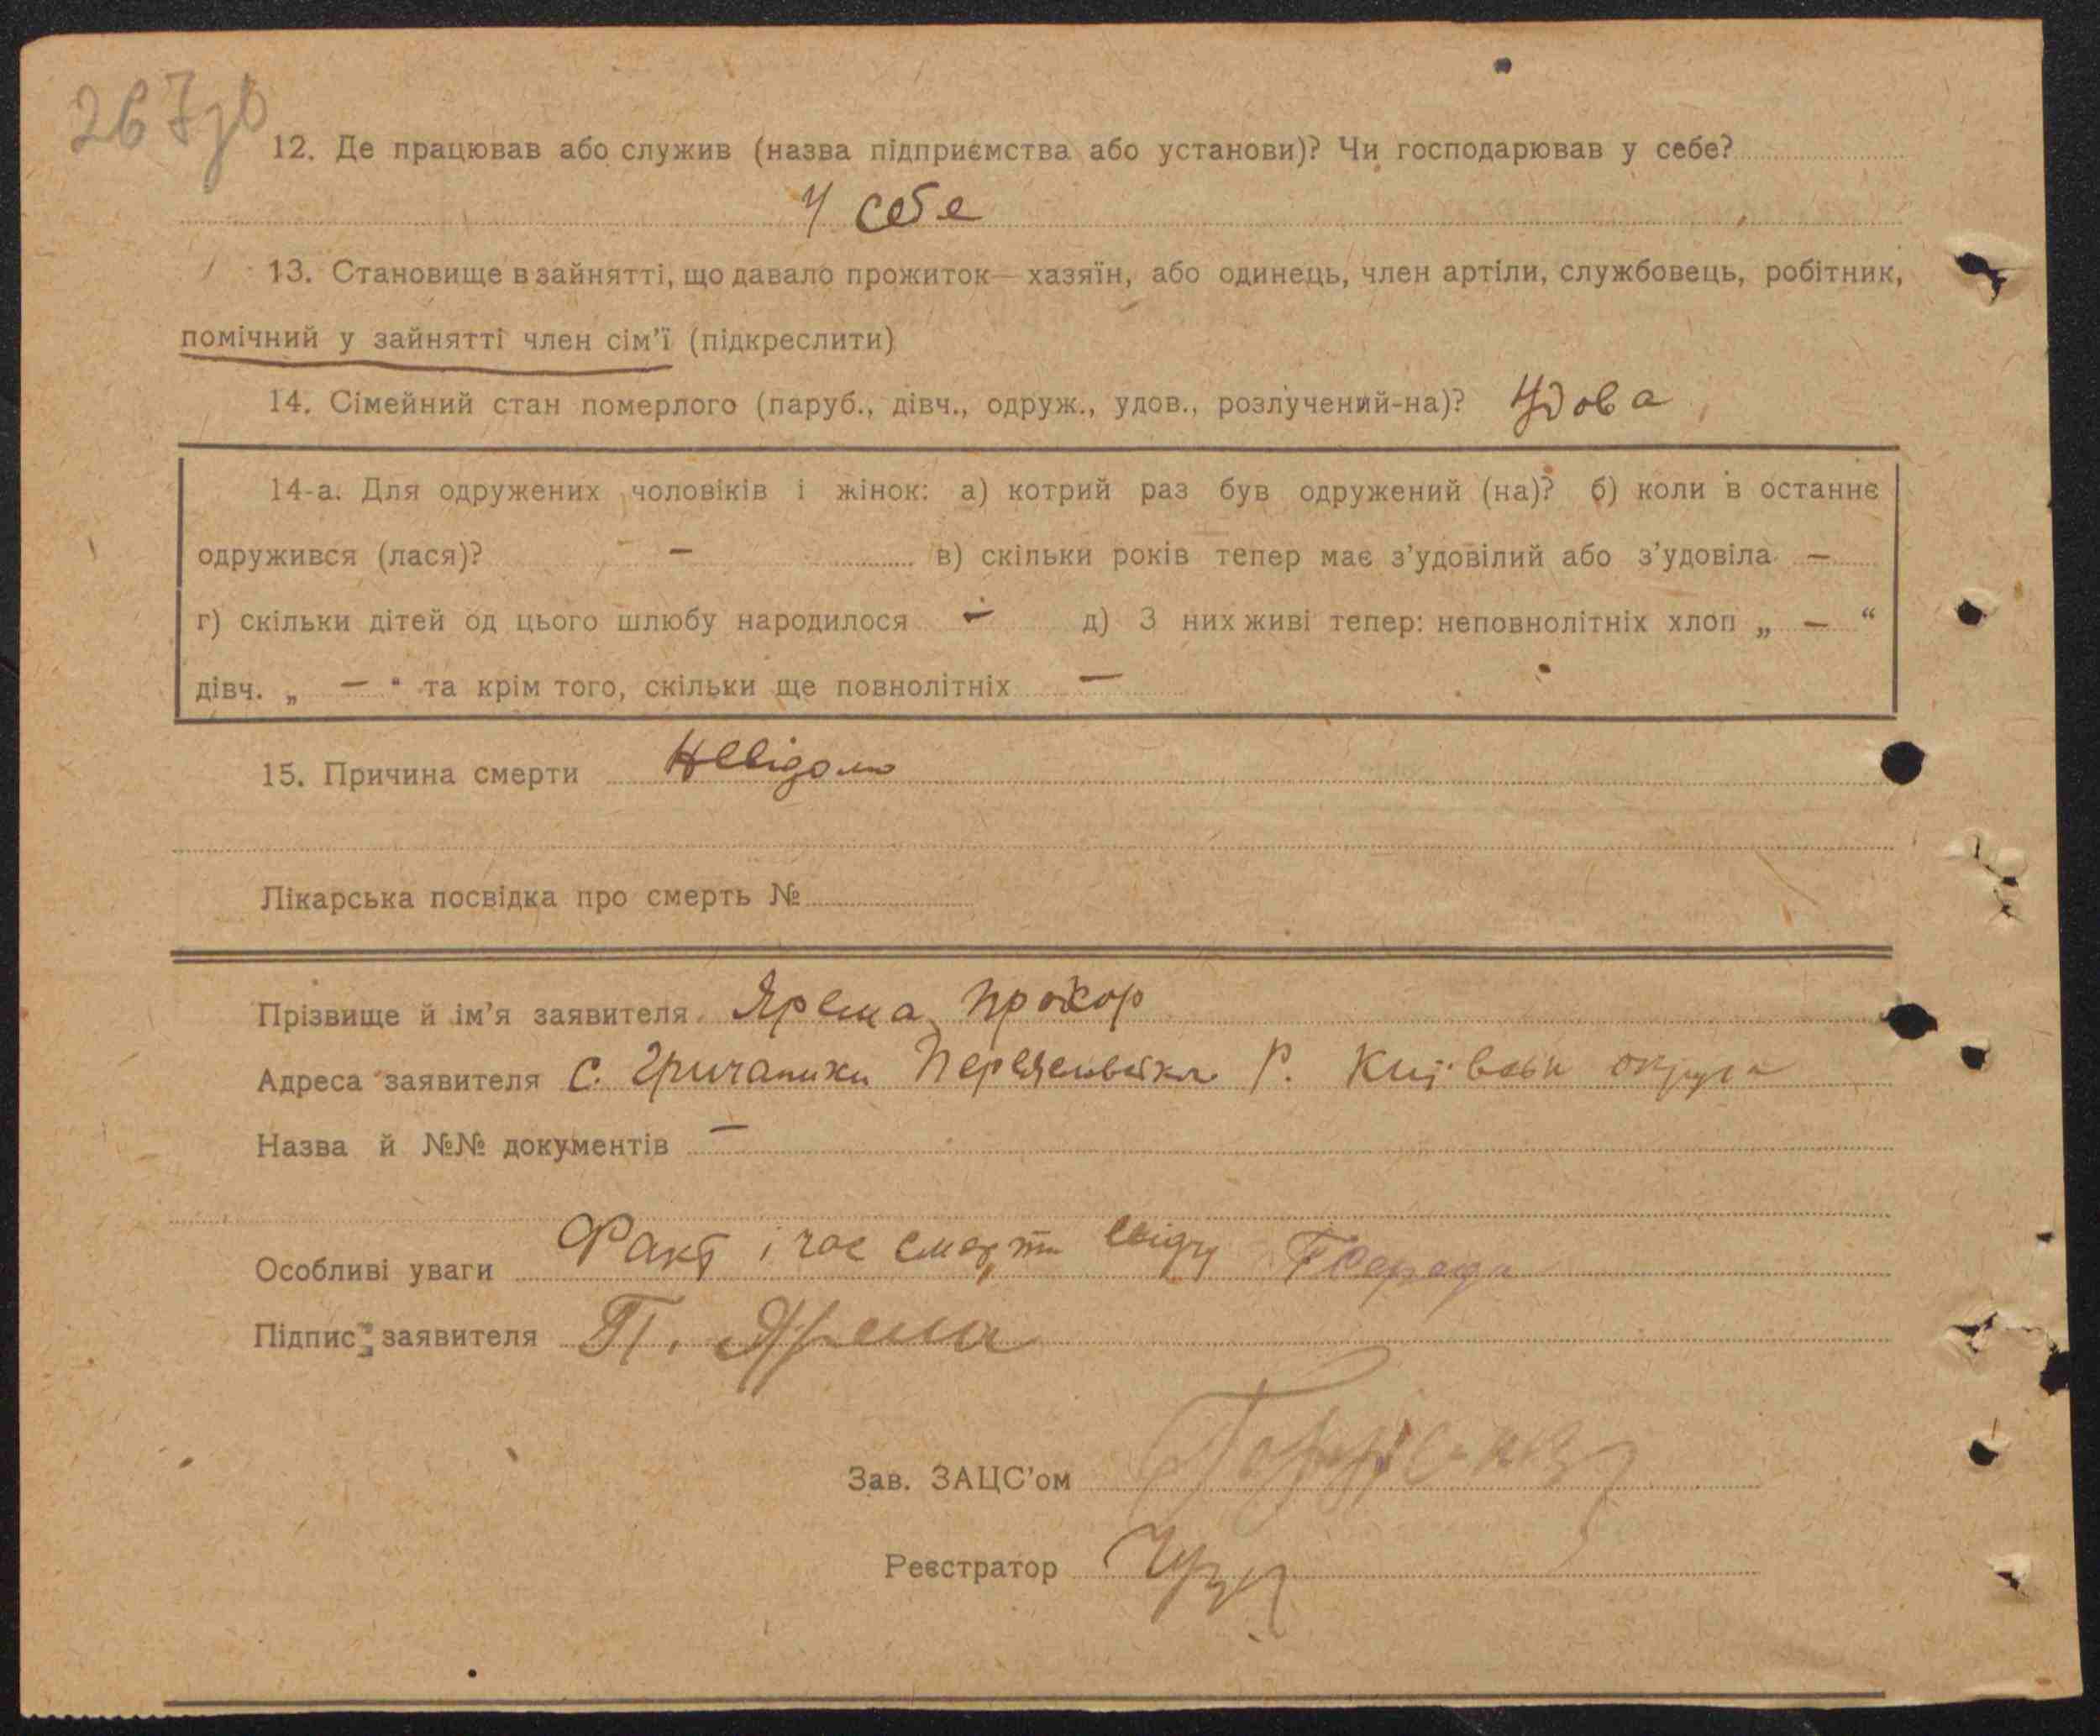 267зв
12. Де працював або служив (назва підприємства або установи)? Чи господарював у себе?
У себе
13. Становище в зайнятті, що давало прожиток — хазяїн, або одинець, член артіли, службовець, робітник,
помічний у зайнятті член сім'ї (підкреслити)
14. Сімейний стан померлого (паруб., дівч., одруж., удов., розлучений-на)? Удова
14-а. Для одружених чоловіків і жінок: а) котрий раз був одружений (на)? б) коли в останнє
одружився (лася)? — в) скільки років тепер має з'удовілий або з'удовіла —
г) скільки дітей од цього шлюбу народилося — д) З них живі тепер: неповнолітніх хлоп „ — “
дівч. „ — “ та крім того, скільки ще повнолітніх —
15. Причина смерти Невідомо
Лікарська посвідка про смерть №
Прізвище й ім'я заявителя Ярема Прохор
Адреса заявителя с. Р. округи
Назва й №№ документів —
Особливі уваги Факт і час смерти Середа
Підпис заявителя П. Ярема
Зав. ЗАЦС'ом
Реєстратор